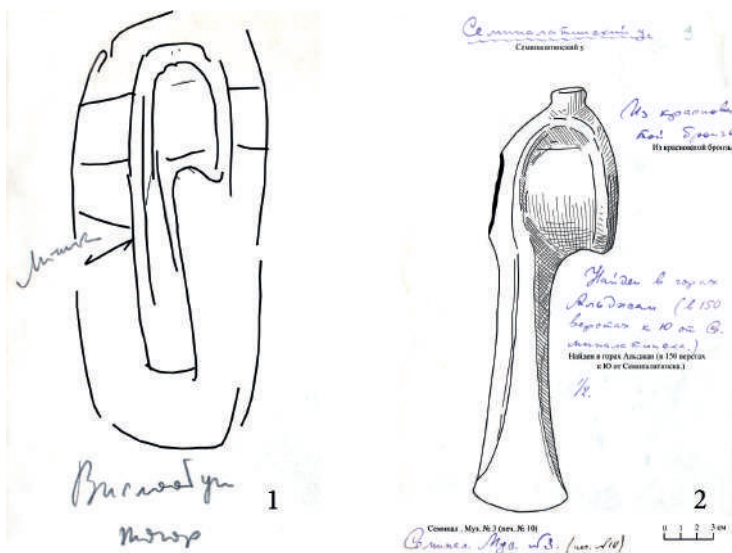 Вислообуш
топор
1
Семипалатинский у.
3
Семипалатинский у.
Из красноватой бронзы
Из красноватой бронзы
Найден в горах
Альджан (в 150
верстах к Ю от Се-
мипалатинска.)
Найден в горах Альджан (в 150 верстах
к Ю от Семипалатинска.)
1/2.
2
Семипал. Муз. № 3 (печ. № 10)
Семипал. Муз. №3. (печ. №10)
0 1 2 3 см